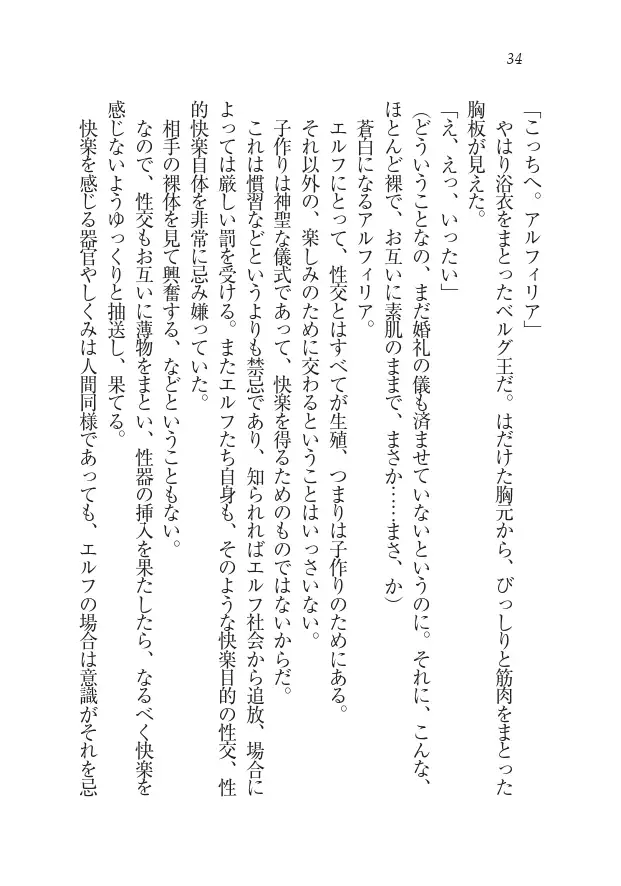 34
「こっちへ。アルフィリア」
やはり浴衣をまとったベルグ王だ。はだけた胸元から、びっしりと筋肉をまとった
胸板が見えた。
「え、えっ、いったい」
（どういうことなの、まだ婚礼の儀も済ませていないというのに。それに、こんな、
ほとんど裸で、お互いに素肌のままで、まさか……まさ、か）
蒼白になるアルフィリア。
エルフにとって、性交とはすべてが生殖、つまりは子作りのためにある。
それ以外の、楽しみのために交わるということはいっさいない。
子作りは神聖な儀式であって、快楽を得るためのものではないからだ。
これは慣習などというよりも禁忌であり、知られればエルフ社会から追放、場合に
よっては厳しい罰を受ける。またエルフたち自身も、そのような快楽目的の性交、性
的快楽自体を非常に忌み嫌っていた。
相手の裸体を見て興奮する、などということもない。
なので、性交もお互いに薄物をまとい、性器の挿入を果たしたら、なるべく快楽を
感じないようゆっくりと抽送し、果てる。
快楽を感じる器官やしくみは人間同様であっても、エルフの場合は意識がそれを忌